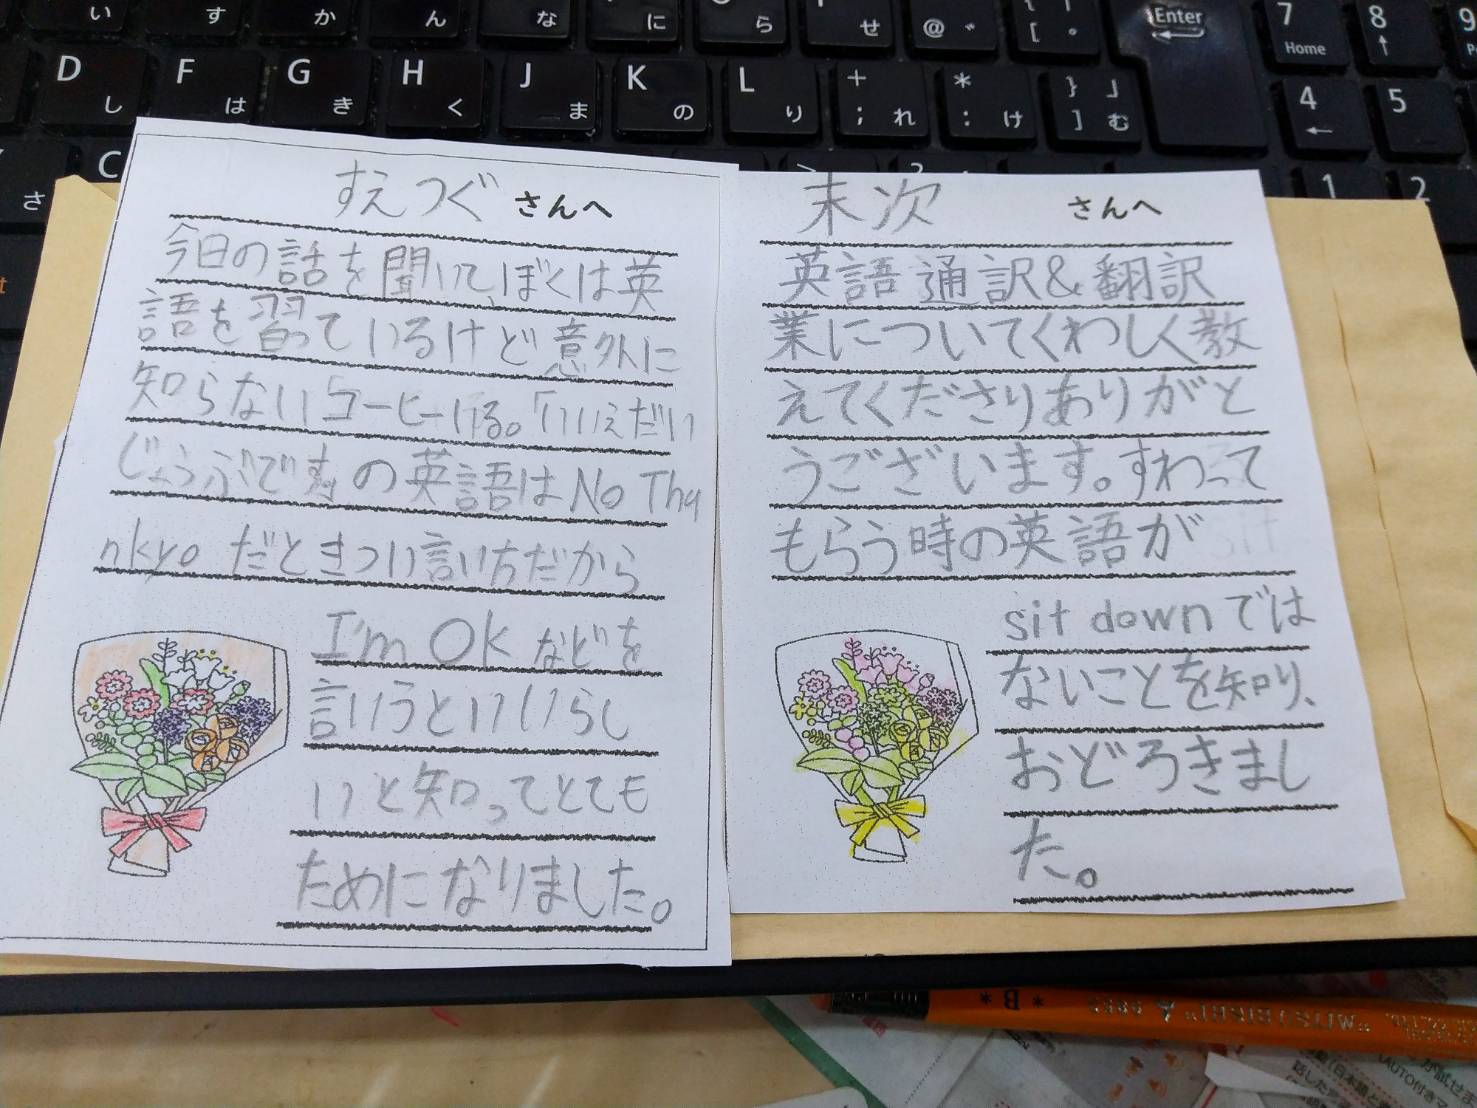 い
す
か
ん
な
に
ら
せ
@ ゛
[ ゜
Enter
7
Home
8
↑
9
D し
F は
G き
H く
J ま
K の
L り
+ ; れ
* : け
} 」 ] む
4
←
5
さ
C
1
2
すえつぐ さんへ
今日の話を聞いて、ぼくは英
語を習っているけど意外に
知らない「コーヒーいる。「いいえだい
じょうぶです」の英語はNo Tha
nkyoだときつい言い方だから
I'm OKなどを
言いうといいらし
いと知ってとても
ためになりました。
末次 さんへ
英語通訳&翻訳
業についてくわしく教
えてくださりありがと
うございます。すわって
もらう時の英語が
sit downでは
ないことを知り、
おどろきまし
た。
* B * 9852 "MITSU-BISHI"